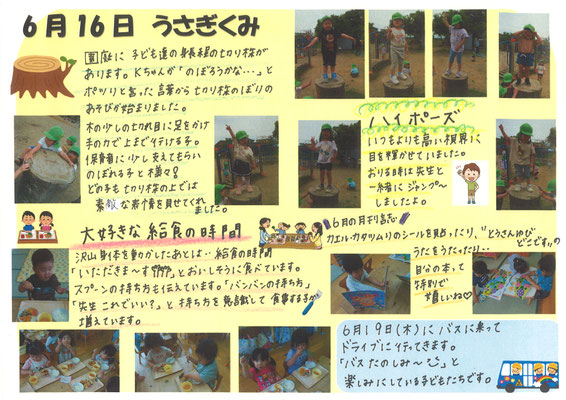 6月16日 うさぎくみ
園庭に子ども達の身長程の切り株が
あります。Kちゃんが「のぼろうかな…」と
ポツリと言った言葉から切り株のぼりの
あそびが始まりました。
木の少しの切れ目に足をかけ
手の力で上まで行ける子。
保育者に少し支えてもらい
のぼれる子と様々♪
どの子も切り株の上では
素敵な表情を見せてくれ
ましたよ。
ハイポーズ
いつもよりも高い視界に
目を輝かせていました。
おりる時は先生と
一緒にジャンプ〜
しましたよ。
大好きな給食の時間
沢山身体を動かしたあとは…給食の時間
「いただきま〜す」とおいしそうに食べています。
スプーンの持ち方も伝えています。「バンバンの持ち方」
「先生これでいい?」と持ち方を意識して食事する子が
増えています。
6月の月刊誌
カエル・カタツムリのシールを貼ったり、"とうさんゆび
どこです"の
うたをうたったり…
自分の本って
特別で
嬉しいね♡
6月19日(木)にバスに乗って
ドライブに行ってきます。
「バスたのしみ〜」と
楽しみにしている子どもたちです。